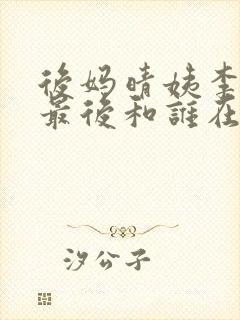 後妈晴姨李
最後和誰在
汐公子